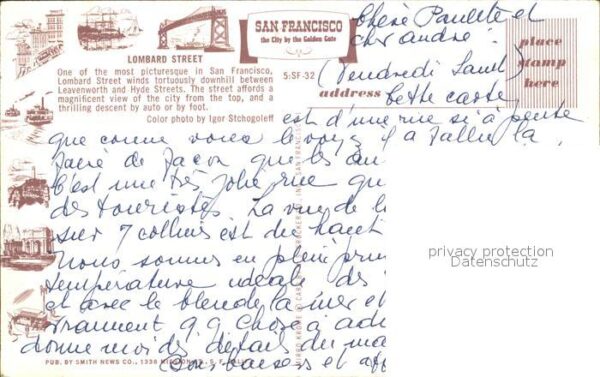 SAN FRANCISCO
the City by the Golden Gate
LOMBARD STREET
One of the most picturesque in San Francisco,
Lombard Street winds tortuously downhill between
Leavenworth and Hyde Streets. The street affords a
magnificent view of the city from the top, and a
thrilling descent by auto or by foot.
Color photo by Igor Stchogoleff
5:SF-32
address
place
stamp
here
Chère Paulette et
cher andré
(Vendredi Saint)
cette carte
est d'une rue si à pente
que comme vous le voyez il a fallu la
de façon que les au
C'est une très jolie rue qu
des touristes. La vue de l
sur 7 collines est du haut
Nous sommes en plein prin
température idéale des
et avec le bleu de la mer et
vraiment q.q. chose à ad
donne moi des détails du ma
Bons baisers et aff
privacy protection
Datenschutz
PUB. BY SMITH NEWS CO., 1338 MISSION ST., S. F., CALIF.